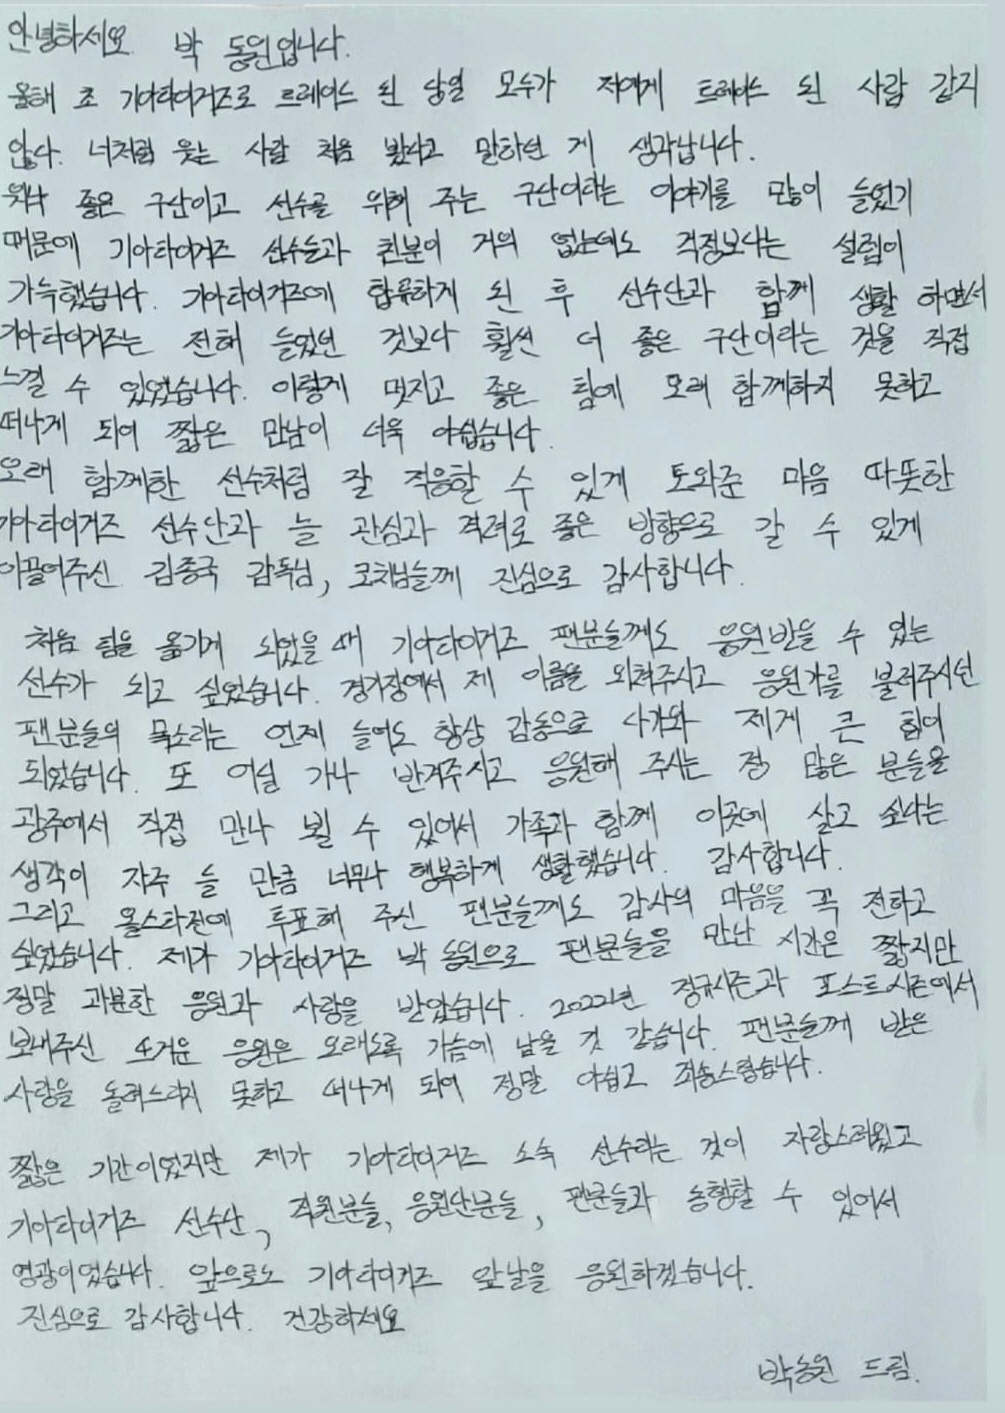 안녕하세요. 박 동원입니다.
올해 초 기아타이거즈로 트레이드 된 당일 모두가 저에게 트레이드 된 사람 같지
않다. 너처럼 웃는 사람 처음 봤다고 말하던 게 생각납니다.
워낙 좋은 구단이고 선수를 위해 주는 구단이라는 이야기를 많이 들었기
때문에 기아타이거즈 선수들과 친분이 거의 없는데도 걱정보다는 설렘이
가득했습니다. 기아타이거즈에 합류하게 된 후 선수단과 함께 생활 하면서
기아타이거즈는 전해 들었던 것보다 훨씬 더 좋은 구단이라는 것을 직접
느낄 수 있었습니다. 이렇게 멋지고 좋은 팀에 오래 함께하지 못하고
떠나게 되어 짧은 만남이 더욱 아쉽습니다.
오래 함께한 선수처럼 잘 적응할 수 있게 도와준 마음 따뜻한
기아타이거즈 선수단과 늘 관심과 격려로 좋은 방향으로 갈 수 있게
이끌어주신 김종국 감독님, 코치님들께 진심으로 감사합니다.
처음 팀을 옮기게 되었을 때 기아타이거즈 팬분들께도 응원받을 수 있는
선수가 되고 싶었습니다. 경기장에서 제 이름을 외쳐주시고 응원가를 불러주시던
팬분들의 목소리는 언제 들어도 항상 감동으로 다가와 제게 큰 힘이
되었습니다. 또 어딜 가나 반겨주시고 응원해 주시는 정 많은 분들을
광주에서 직접 만나 뵐 수 있어서 가족과 함께 이곳에 살고 싶다는
생각이 자주 들 만큼 너무나 행복하게 생활했습니다. 감사합니다.
그리고 올스타전에 투표해 주신 팬분들께도 감사의 마음을 꼭 전하고
싶었습니다. 제가 기아타이거즈 박 동원으로 팬분들을 만난 시간은 짧지만
정말 과분한 응원과 사랑을 받았습니다. 2022년 정규시즌과 포스트시즌에서
보내주신 뜨거운 응원은 오래도록 가슴에 남을 것 같습니다. 팬분들께 받은
사랑을 돌려드리지 못하고 떠나게 되어 정말 아쉽고 죄송스럽습니다.
짧은 기간이었지만 제가 기아타이거즈 소속 선수라는 것이 자랑스러웠고
기아타이거즈 선수단, 직원분들, 응원단분들, 팬분들과 동행할 수 있어서
영광이었습니다. 앞으로도 기아타이거즈 앞날을 응원하겠습니다.
진심으로 감사합니다. 건강하세요
박동원 드림.